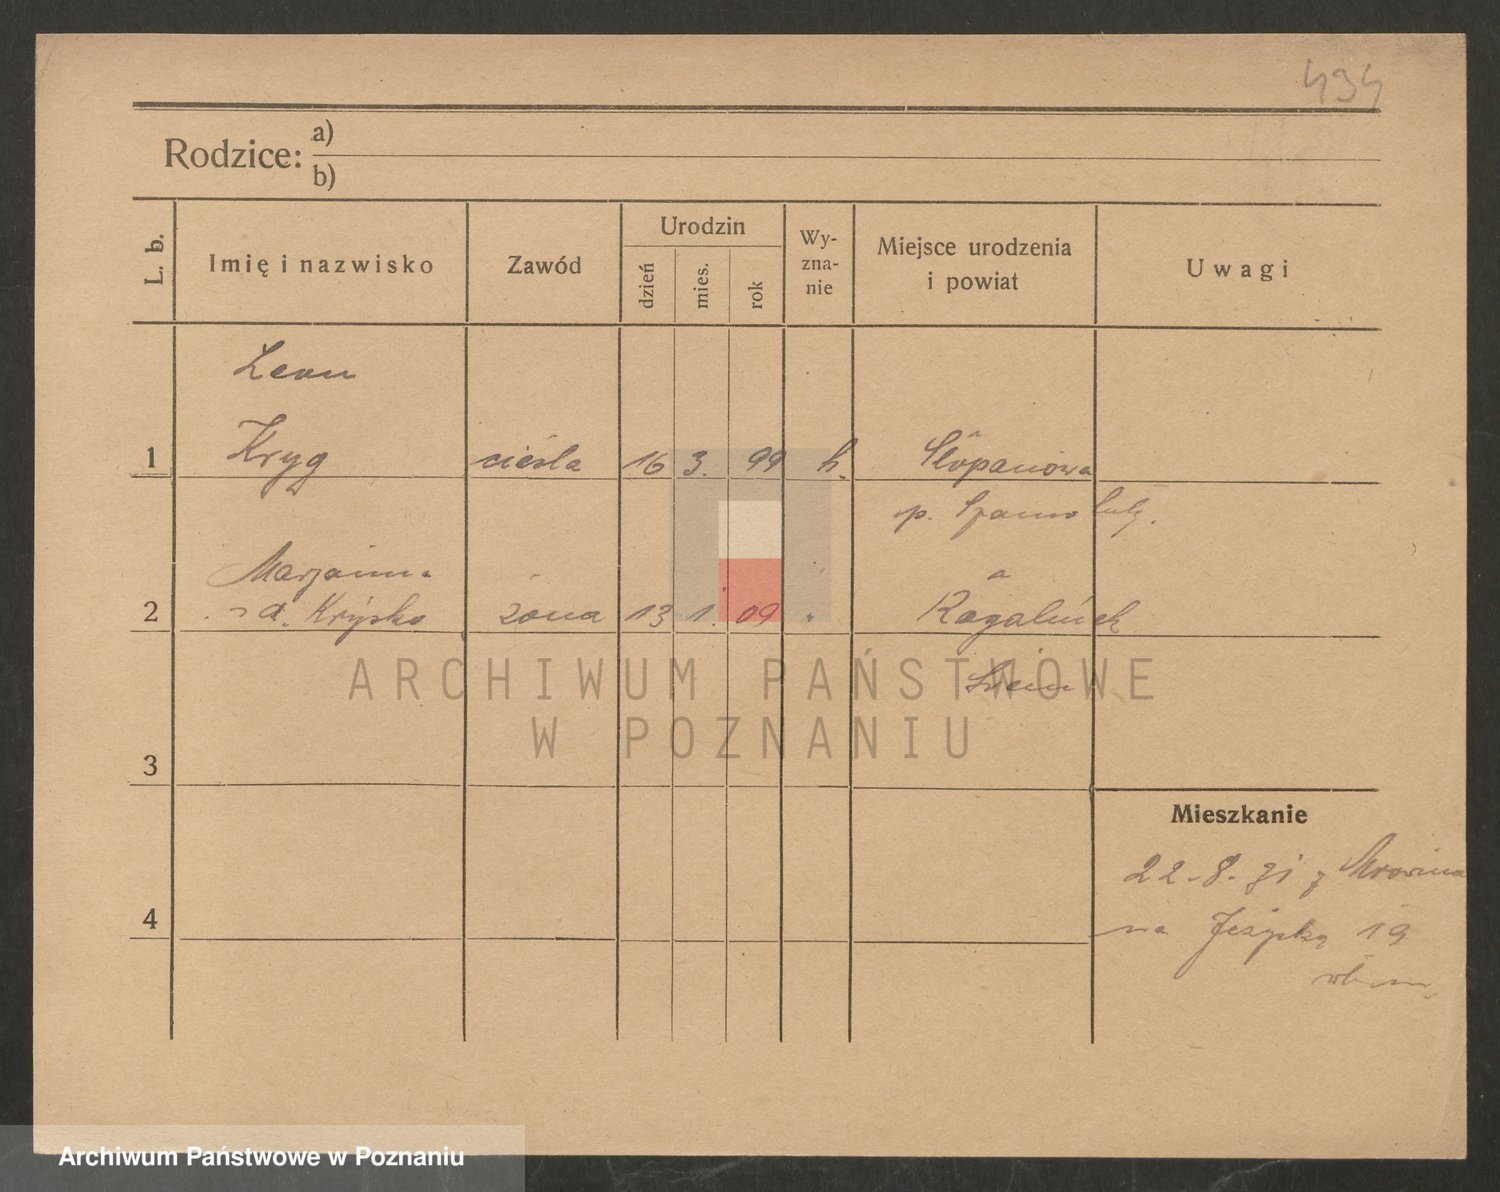 434
Rodzice: a)
b)
L. b.
Imię i nazwisko
Zawód
Urodzin
dzień
mies.
rok
Wy-
zna-
nie
Miejsce urodzenia
i powiat
Uwagi
Leon
1 Kryg cieśla 16 3. 99
p.
Marjanna
2 żona 13 1. 09 Rogalinek
Śrem
3
4
Mieszkanie
22-8. 31 z Mrowina
na 19
ARCHIWUM PAŃSTWOWE
W POZNANIU
Archiwum Państwowe w Poznaniu